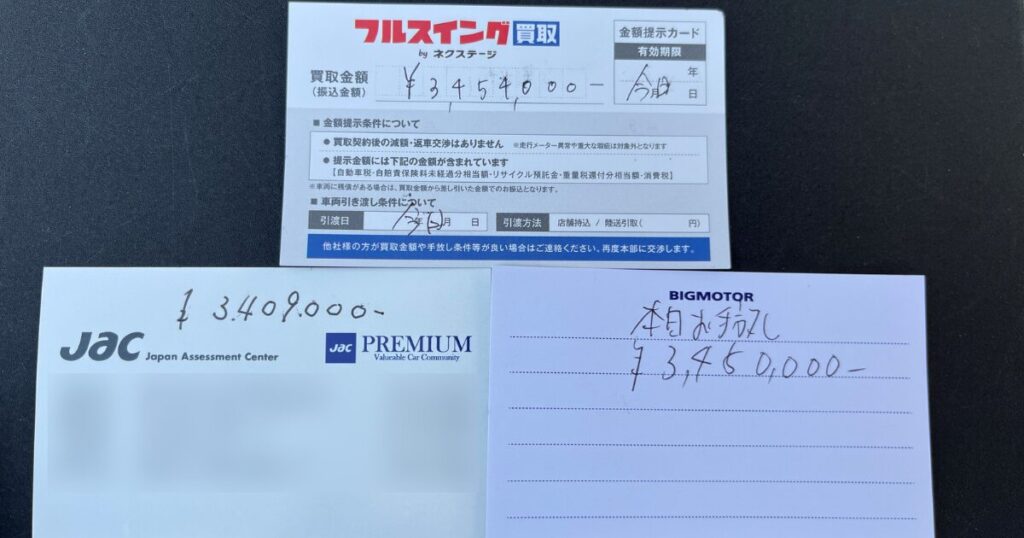 フルスイング買取
by ネクステージ
金額提示カード
有効期限
今 年
今月日 日
買取金額
(振込金額)
¥3,454,000-
■ 金額提示条件について
● 買取契約後の減額・返車交渉はありません ※走行メーター異常や重大な瑕疵は対象外となります
● 提示金額には下記の金額が含まれています
【自動車税・自賠責保険料未経過分相当額・リサイクル預託金・重量税還付分相当額・消費税】
※車両に残債がある場合は、買取金額から差し引いた金額でのお振込となります。
■ 車両引き渡し条件について
引渡日 年 月 日 引渡方法 店舗持込 / 陸送引取( 円)
他社様の方が買取金額や手放し条件等が良い場合はご連絡ください、再度本部に交渉します。
¥3.409.000-
JAC Japan Assessment Center
JAC PREMIUM
Valueable Car Community
BIGMOTOR
本日お手放し
¥3,450,000-